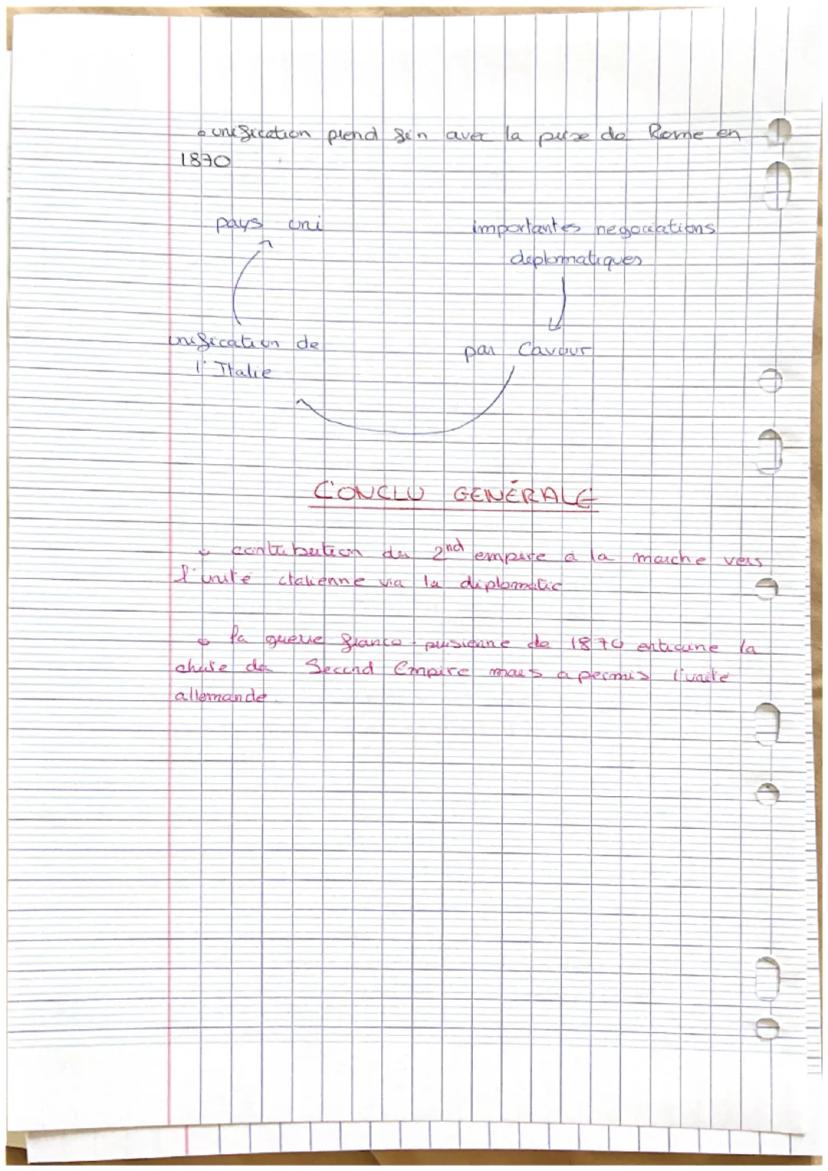 unification prend fin avec la prise de Rome en
1870
pays uni
importantes negociations
diplomatiques
unification de
l'Italie
par Cavour
CONCLU GENÉRALE
contribution du 2nd empire à la marche vers
l'unité italienne via la diplomatie
la guerre franco-prusienne de 1870 entraine la
chute du Second Empire mais a permis l'unité
allemande.